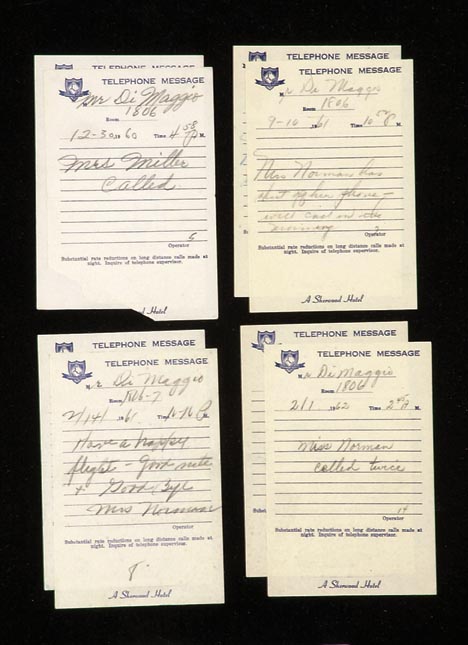 TELEPHONE MESSAGE
TELEPHONE MESSAGE
Mr Di Maggio
1806
Room
12-30, 1960 Time 4 58 P M.
Mrs Miller
Called
5
Operator
Substantial rate reductions on long distance calls made at
night. Inquire of telephone supervisor.
Hotel
TELEPHONE MESSAGE
TELEPHONE MESSAGE
Mr Di Maggio
Room 1806
9-10 1961 Time 10 P M.
Miss Norman has
shut off her phone -
will call in the
morning
Operator
Substantial rate reductions on long distance calls made at
night. Inquire of telephone supervisor.
A Sherwood Hotel
TELEPHONE MESSAGE
TELEPHONE MESSAGE
Mr Di Maggio
Room 1806-7
2/14/ 1961 Time 10 P M.
Have a happy
flight - Good nite
+ Good Bye
Mrs Norman
Operator
Substantial rate reductions on long distance calls made at
night. Inquire of telephone supervisor.
A Sherwood Hotel
TELEPHONE MESSAGE
TELEPHONE MESSAGE
Mr Di Maggio
Room 1806
2/1 1962 Time 2 45 P M.
Miss Norman
called twice
14
Operator
Subst
Substantial rate reductions on long distance calls made at
night. Inquire of telephone supervisor.
A Sherwood Hotel